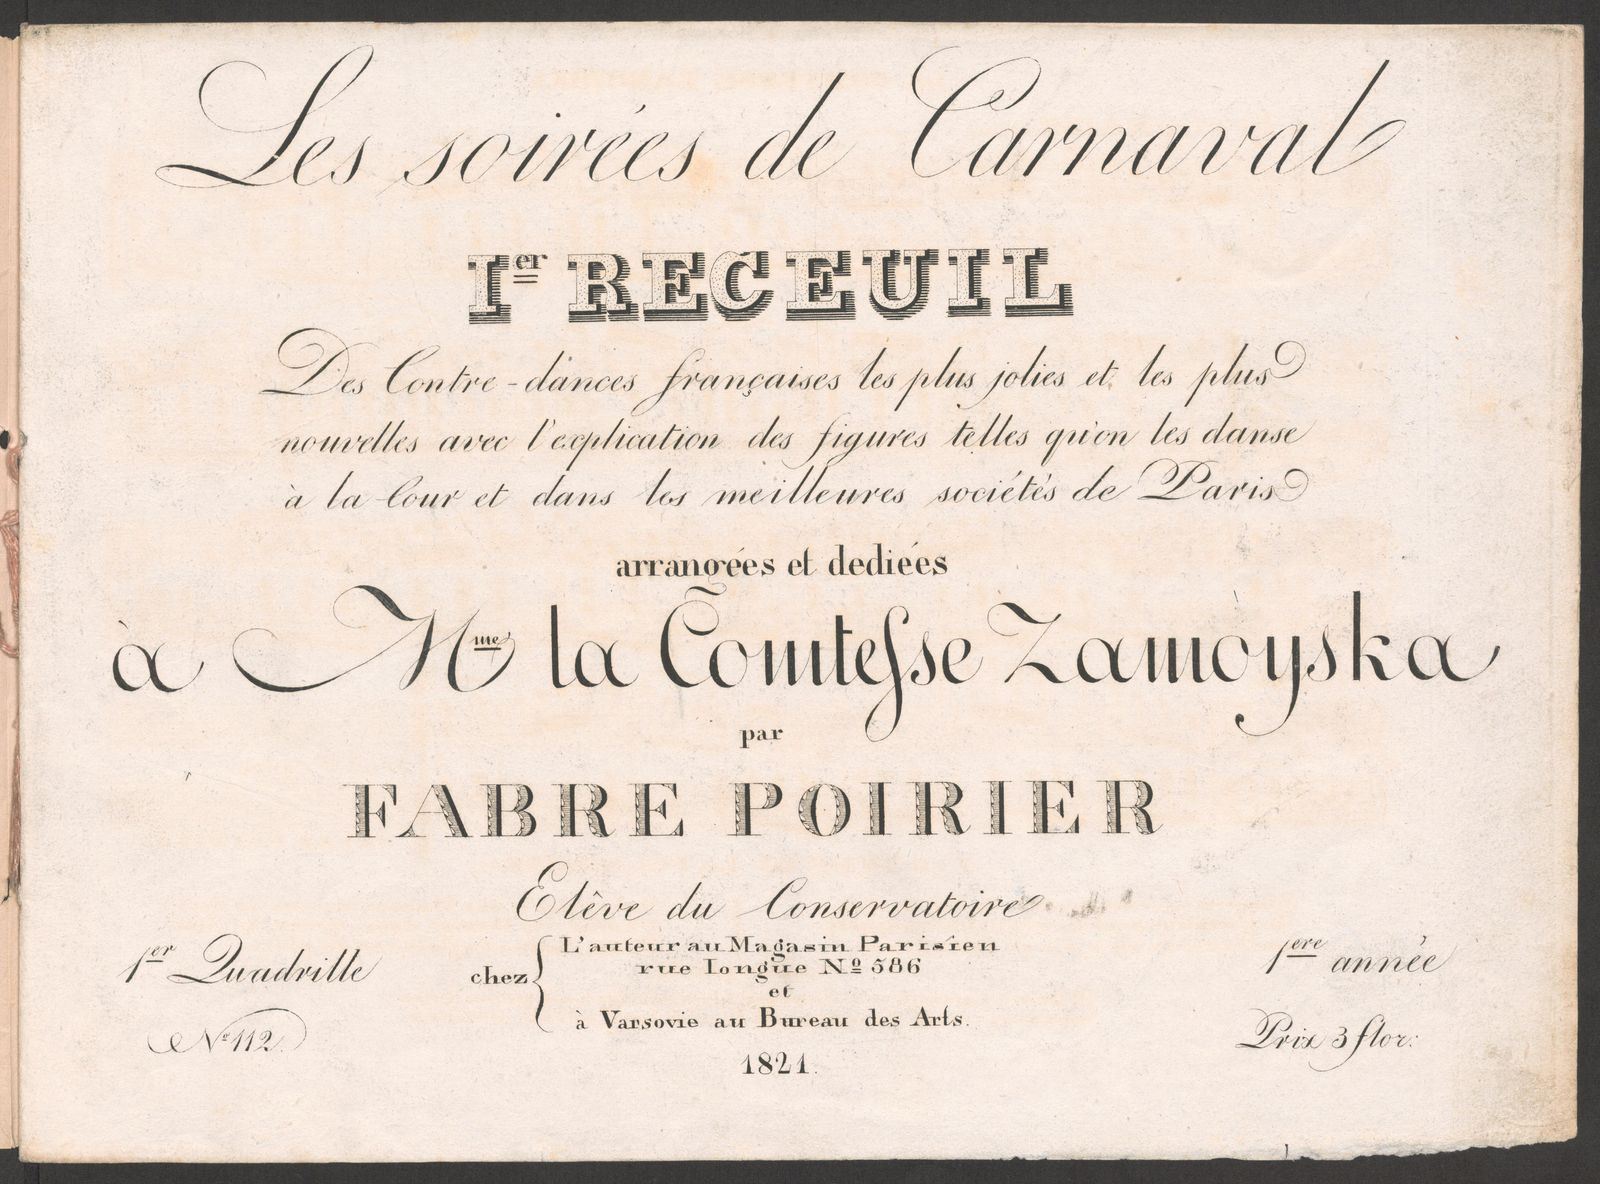 Les soirées de Carnaval
Ier RECEUIL
Des Contre-dances françaises les plus jolies et les plus
nouvelles avec l'explication des figures telles qu'on les danse
à la Cour et dans les meilleures sociétés de Paris
arrangées et dediées
à Mme la Comtesse Zamoyska
par
FABRE POIRIER
Elêve du Conservatoire
1er Quadrille
chez { L'auteur au Magasin Parisien
rue longue No 586
et
à Varsovie au Bureau des Arts.
1ere année
No 112.
Prix 3 flor:
1821.